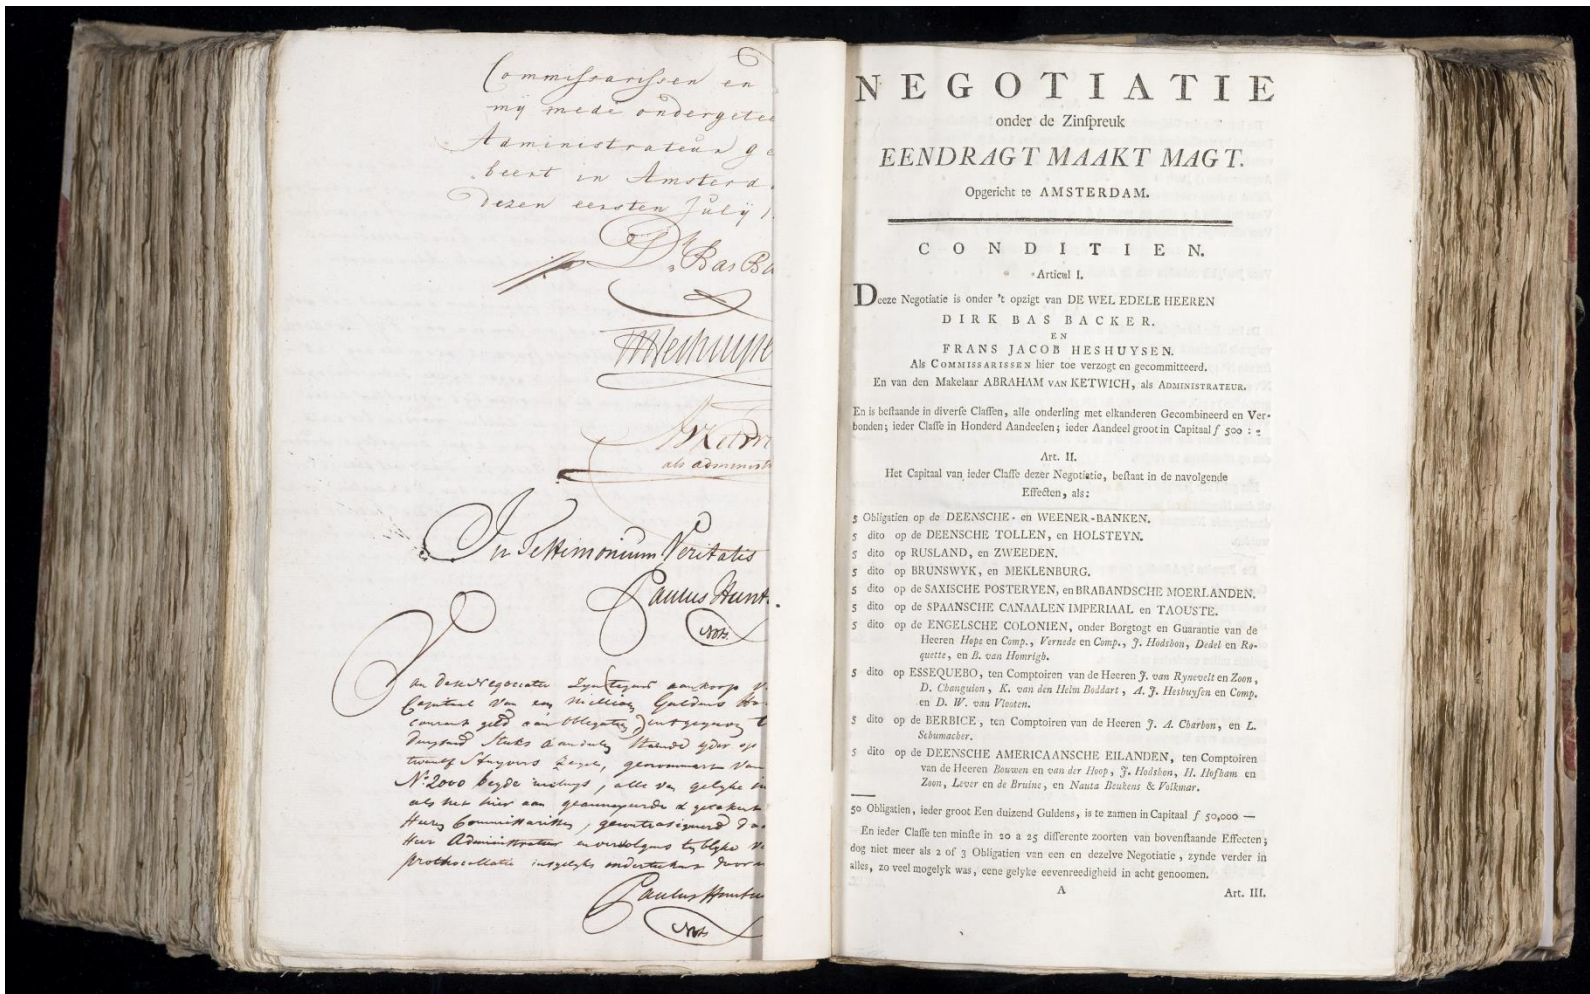 Commissarissen en
mij mede ondergetee
Administrateur ge
beert in Amsterd
dezen eersten Julij 1
Dk Bas Ba
als administ
In Testimonium Veritatis
Paulus Hunt
Nots
Capitaal van een Millioen Guldens
courant geld aan obligatien
twaalf Stuyvers Zegel, genommert van
No 2000 beyde incluijs, alle van gelyke in
als het hier aan geannexeerde &
Heeren Commissarissen, gecontrasigneerd do
Heer Administrateur en vervolgens ten blyke
prothocollatie insgelyks ondertekent door
Nots
NEGOTIATIE
onder de Zinſpreuk
EENDRAGT MAAKT MAGT.
Opgericht te AMSTERDAM.
CONDITIEN.
Articul I.
Deeze Negotiatie is onder 't opzigt van DE WEL EDELE HEEREN
DIRK BAS BACKER.
EN
FRANS JACOB HESHUYSEN.
Als COMMISSARISSEN hier toe verzogt en gecommitteerd.
En van den Makelaar ABRAHAM VAN KETWICH, als ADMINISTRATEUR.
En is beſtaande in diverſe Claſſen, alle onderling met elkanderen Gecombineerd en Ver-
bonden; ieder Claſſe in Honderd Aandeelen; ieder Aandeel groot in Capitaal ƒ 500 : -
Art. II.
Het Capitaal van ieder Claſſe dezer Negotiatie, beſtaat in de navolgende
Effecten, als:
5 Obligatien op de DEENSCHE- en WEENER-BANKEN.
5 dito op de DEENSCHE TOLLEN, en HOLSTEYN.
5 dito op RUSLAND, en ZWEEDEN.
5 dito op BRUNSWYK, en MEKLENBURG.
5 dito op de SAXISCHE POSTERYEN, en BRABANDSCHE MOERLANDEN.
5 dito op de SPAANSCHE CANAALEN IMPERIAAL en TAOUSTE.
5 dito op de ENGELSCHE COLONIEN, onder Borgtogt en Guarantie van de
Heeren Hope en Comp., Vernede en Comp., J. Hodshon, Dedel en Ro-
quette, en B. van Homrigh.
5 dito op ESSEQUEBO, ten Comptoiren van de Heeren J. van Rynevelt en Zoon,
D. Changuion, K. van den Helm Boddart, A. J. Heshuyſen en Comp.
en D. W. van Vlooten.
5 dito op de BERBICE, ten Comptoiren van de Heeren J. A. Charbon, en L.
Schumacher.
5 dito op de DEENSCHE AMERICAANSCHE EILANDEN, ten Comptoiren
van de Heeren Bouwen en van der Hoop, J. Hodshon, H. Hofham en
Zoon, Lever en de Bruine, en Nauta Beukens & Volkmar.
50 Obligatien, ieder groot Een duizend Guldens, is te zamen in Capitaal ƒ 50,000 —
En ieder Claſſe ten minſte in 20 a 25 differente zoorten van bovenſtaande Effecten;
dog niet meer als 2 of 3 Obligatien van een en dezelve Negotiatie, zynde verder in
alles, zo veel mogelyk was, eene gelyke eevenreedigheid in acht genoomen.
A Art. III.